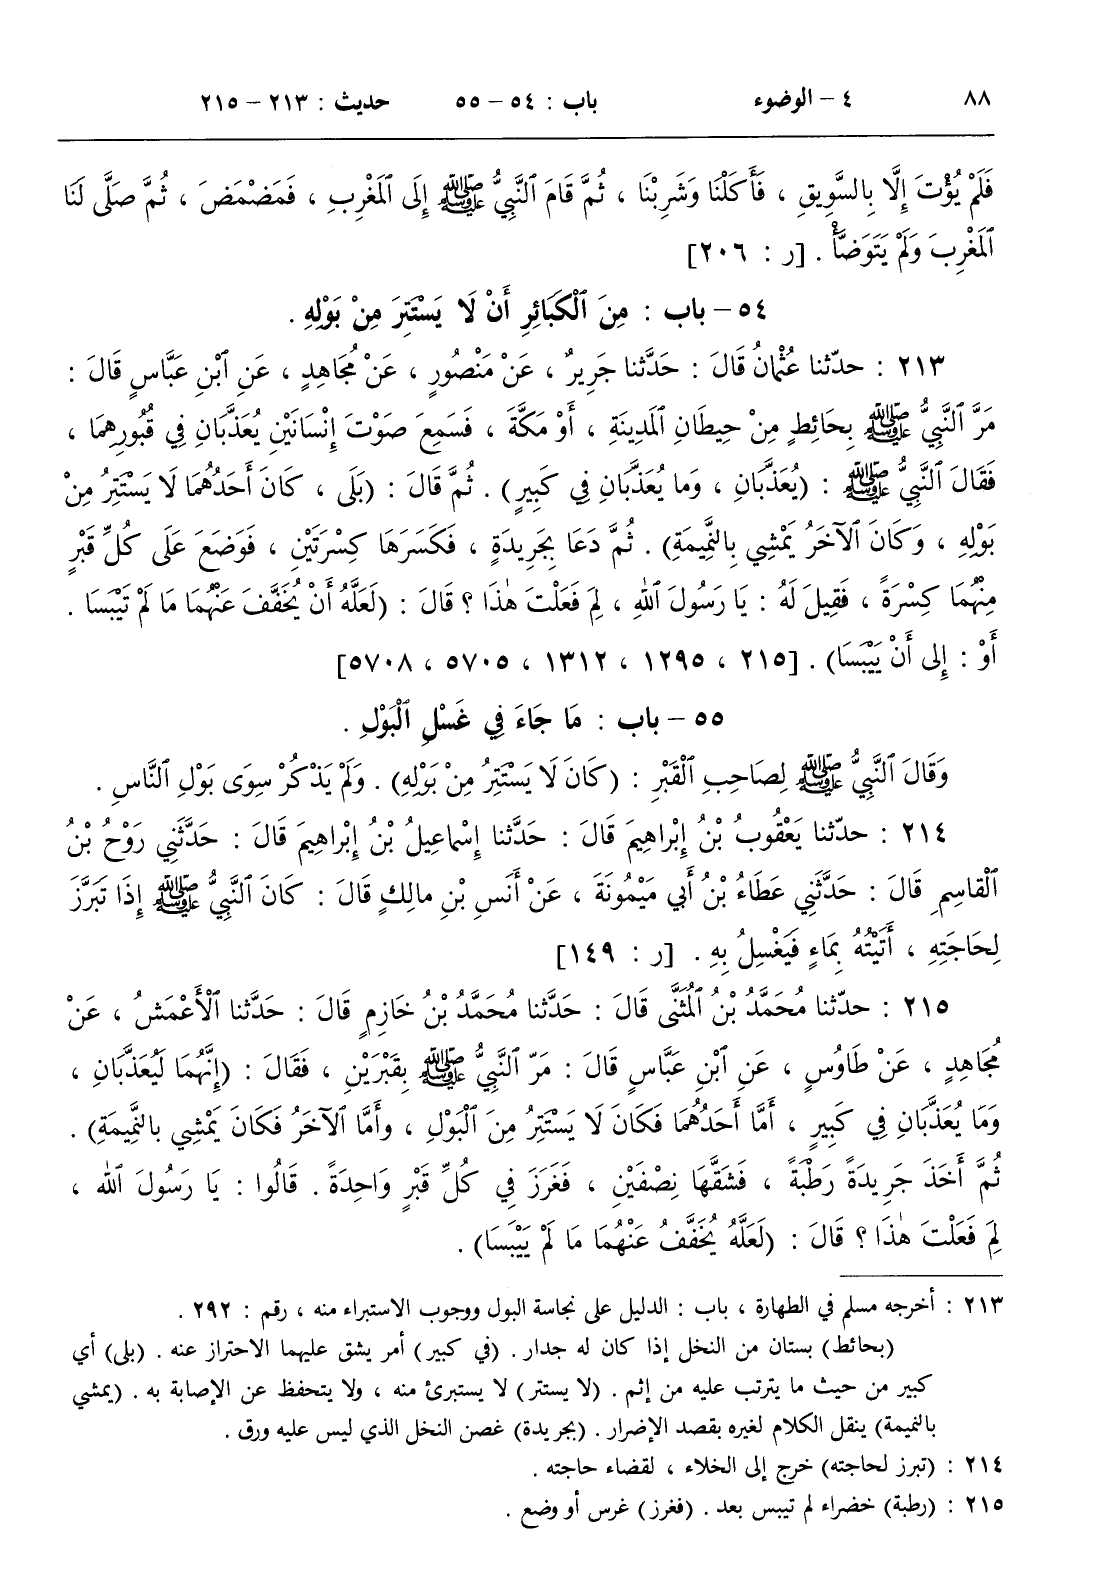 ٨٨ ٤ – الوضوء باب : ٥٤ – ٥٥ حديث : ٢١٣ – ٢١٥
فَلَمْ يُؤْتَ إِلَّا بِالسَّوِيقِ ، فَأَكَلْنَا وَشَرِبْنَا ، ثُمَّ قَامَ ٱلنَّبِيُّ ﷺ إِلَى ٱلمَغْرِبِ ، فَمَضْمَضَ ، ثُمَّ صَلَّى لَنَا
ٱلمَغْرِبَ وَلَمْ يَتَوَضَّأْ . [ر : ٢٠٦]
٥٤ – باب : مِنَ ٱلْكَبَائِرِ أَنْ لَا يَسْتَتِرَ مِنْ بَوْلِهِ .
٢١٣ : حدّثنا عُثْمَانُ قَالَ : حَدَّثنا جَرِيرٌ ، عَنْ مَنْصُورٍ ، عَنْ مُجَاهِدٍ ، عَنِ ٱبْنِ عَبَّاسٍ قَالَ :
مَرَّ ٱلنَّبِيُّ ﷺ بِحَائِطٍ مِنْ حِيطَانِ ٱلمَدِينَةِ ، أَوْ مَكَّةَ ، فَسَمِعَ صَوْتَ إِنْسَانَيْنِ يُعَذَّبَانِ فِي قُبُورِهِمَا ،
فَقَالَ ٱلنَّبِيُّ ﷺ : (يُعَذَّبَانِ ، وَما يُعَذَّبَانِ فِي كَبِيرٍ) . ثُمَّ قَالَ : (بَلَى ، كَانَ أَحَدُهُمَا لَا يَسْتَتِرُ مِنْ
بَوْلِهِ ، وَكَانَ ٱلآخَرُ يَمْشِي بِالنَّمِيمَةِ) . ثُمَّ دَعَا بِجَرِيدَةٍ ، فَكَسَرَهَا كِسْرَتَيْنِ ، فَوَضَعَ عَلَى كُلِّ قَبْرٍ
مِنْهُمَا كِسْرَةً ، فَقِيلَ لَهُ : يَا رَسُولَ ٱللهِ ، لِمَ فَعَلْتَ هٰذَا ؟ قَالَ : (لَعَلَّهُ أَنْ يُخَفَّفَ عَنْهُمَا مَا لَمْ تَيْبَسَا .
أَوْ : إِلى أَنْ يَيْبَسَا) . [٢١٥ ، ١٢٩٥ ، ١٣١٢ ، ٥٧٠٥ ، ٥٧٠٨]
٥٥ – باب : مَا جَاءَ فِي غَسْلِ ٱلْبَوْلِ .
وَقَالَ ٱلنَّبِيُّ ﷺ لِصَاحِبِ ٱلْقَبْرِ : (كَانَ لَا يَسْتَتِرُ مِنْ بَوْلِهِ) . وَلَمْ يَذْكُرْ سِوَى بَوْلِ ٱلنَّاسِ .
٢١٤ : حدّثنا يَعْقُوبُ بْنُ إِبْرَاهِيمَ قَالَ : حَدَّثنا إِسْماعِيلُ بْنُ إِبْرَاهِيمَ قَالَ : حَدَّثَنِي رَوْحُ بْنُ
ٱلْقاسِمِ قَالَ : حَدَّثَنِي عَطَاءُ بْنُ أَبِي مَيْمُونَةَ ، عَنْ أَنَسِ بْنِ مالِكٍ قَالَ : كَانَ ٱلنَّبِيُّ ﷺ إِذَا تَبَرَّزَ
لِحَاجَتِهِ ، أَتَيْتُهُ بِمَاءٍ فَيَغْسِلُ بِهِ . [ر : ١٤٩]
٢١٥ : حدّثنا مُحَمَّدُ بْنُ ٱلمُثَنَّى قَالَ : حَدَّثنا مُحَمَّدُ بْنُ خَازِمٍ قَالَ : حَدَّثنا ٱلْأَعْمَشُ ، عَنْ
مُجَاهِدٍ ، عَنْ طَاوُسٍ ، عَنِ ٱبْنِ عَبَّاسٍ قَالَ : مَرّ ٱلنَّبِيُّ ﷺ بِقَبْرَيْنِ ، فَقَالَ : (إِنَّهُمَا لَيُعَذَّبَانِ ،
وَمَا يُعَذَّبَانِ فِي كَبِيرٍ ، أَمَّا أَحَدُهُمَا فَكَانَ لَا يَسْتَتِرُ مِنَ ٱلْبَوْلِ ، وَأَمَّا ٱلآخَرُ فَكَانَ يَمْشِي بِالنَّمِيمَةِ) .
ثُمَّ أَخَذَ جَرِيدَةً رَطْبَةً ، فَشَقَّهَا نِصْفَيْنِ ، فَغَرَزَ فِي كُلِّ قَبْرٍ وَاحِدَةً . قَالُوا : يَا رَسُولَ ٱللهِ ،
لِمَ فَعَلْتَ هٰذَا ؟ قَالَ : (لَعَلَّهُ يُخَفَّفُ عَنْهُمَا مَا لَمْ يَيْبَسَا) .
٢١٣ : أخرجه مسلم في الطهارة ، باب : الدليل على نجاسة البول ووجوب الاستبراء منه ، رقم : ٢٩٢ .
(بحائط) بستان من النخل إذا كان له جدار . (في كبير) أمر يشق عليهما الاحتراز عنه . (بلى) أي
كبير من حيث ما يترتب عليه من إثم . (لا يستتر) لا يستبرئ منه ، ولا يتحفظ عن الإصابة به . (يمشي
بالنميمة) ينقل الكلام لغيره بقصد الإضرار . (بجريدة) غصن النخل الذي ليس عليه ورق .
٢١٤ : (تبرز لحاجته) خرج إلى الخلاء ، لقضاء حاجته .
٢١٥ : (رطبة) خضراء لم تيبس بعد . (فغرز) غرس أو وضع .